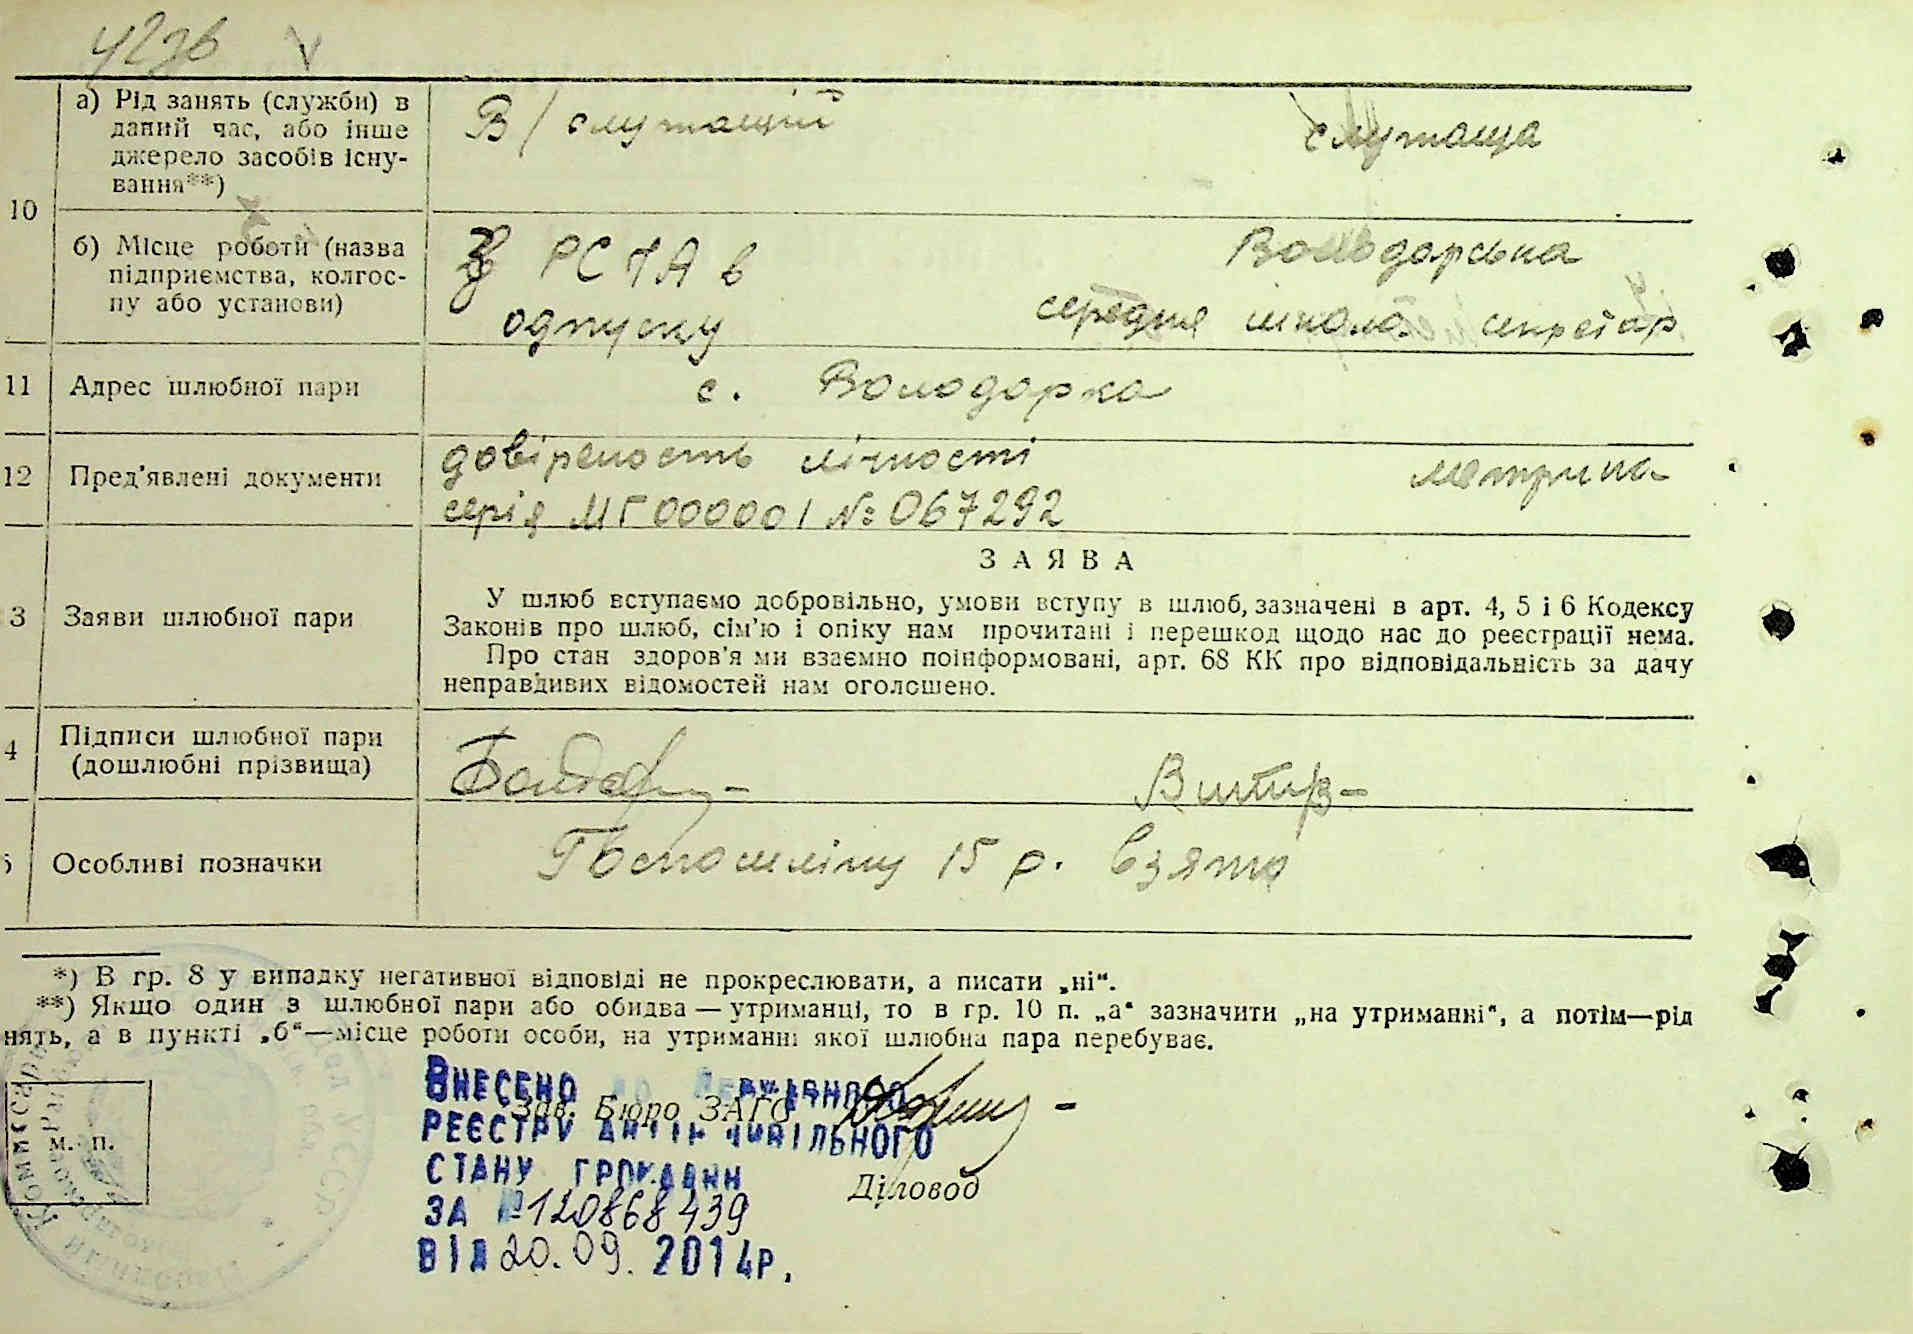 10
а) Рід занять (служби) в
даний час, або інше
джерело засобів існу-
вання**)
В/служащий
служаща
б) Місце роботи (назва
підприємства, колгос-
пу або установи)
РСЧА в
одпуску
Володарська
середня школа секретар
11
Адрес шлюбної пари
с. Володарка
12
Пред'явлені документи
довіреность лічності
серія МГ000001 № 067292
метрика
3
Заяви шлюбної пари
ЗАЯВА
У шлюб вступаємо добровільно, умови вступу в шлюб, зазначені в арт. 4, 5 і 6 Кодексу
Законів про шлюб, сім'ю і опіку нам прочитані і перешкод щодо нас до реєстрації нема.
Про стан здоров'я ми взаємно поінформовані, арт. 68 КК про відповідальність за дачу
неправдивих відомостей нам оголошено.
4
Підписи шлюбної пари
(дошлюбні прізвища)
Особливі позначки
Госпошліну 15 р. взято
*) В гр. 8 у випадку негативної відповіді не прокреслювати, а писати „ні“.
**) Якщо один з шлюбної пари або обидва — утриманці, то в гр. 10 п. „а“ зазначити „на утриманні“, а потім—рід
нять, а в пункті „б“—місце роботи особи, на утриманні якої шлюбна пара перебуває.
м. п.
Зав. Бюро ЗАГС
Діловод
ВНЕСЕНО ДО ДЕРЖАВНОГО
РЕЄСТРУ АКТІВ ЦИВІЛЬНОГО
СТАНУ ГРОМАДЯН
ЗА №120868439
ВІД 20.09. 2014р.